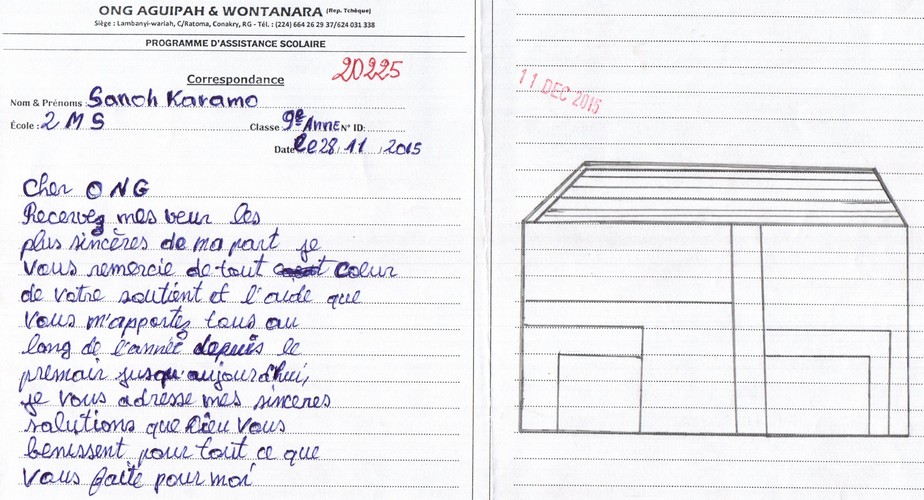 ONG AGUIPAH & WONTANARA (Rep. Tchèque)
Siège : Lambanyi-wariah, C/Ratoma, Conakry, RG - Tél. : (224) 664 26 29 37/624 031 338
PROGRAMME D'ASSISTANCE SCOLAIRE
Correspondance
20225
Nom & Prénoms : Sanoh Karamo
École : 2 M S
Classe 9e Anne N° ID:
Date Le 28 / 11 / 2015
Cher ONG
Recervez mes veur les
plus sincères de ma part je
Vous remercie de tout coeur
de votre soutient et l'aide que
Vous m'apportez tous au
long de l'année depuis le
premair jusqu'aujourd'hui,
je vous adresse mes sinceres
salutions que Dieu Vous
benissent pour tout ce que
Vous faite pour moi
11 DEC 2015